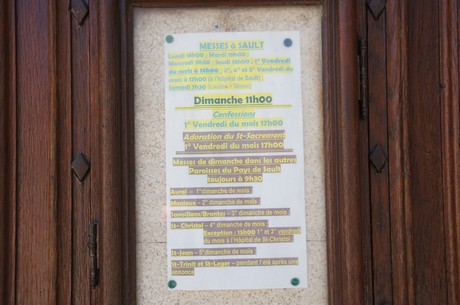 MESSES à SAULT
Lundi 18h00 ; Mardi 18h00 ;
Mercredi 9h30 ; Jeudi 18h00 ; 1er Vendredi
du mois à 18h00 ; 2°, 4° et 5° Vendredi du
mois à 17h00 (à l'hôpital de Sault) ;
Samedi 9h30
Dimanche 11h00
Confessions
1er Vendredi du mois 17h00
Adoration du St-Sacrement
1er Vendredi du mois 17h00
Messes de dimanche dans les autres
Paroisses du Pays de Sault
toujours à 9h30
Aurel – 1°dimanche de mois
Monieux – 2° dimanche de mois
Savoillans/Brantes – 3° dimanche de mois
St- Christol – 4° dimanche de mois
Exception : 15h00 1° et 3° vendredi
du mois à l'Hôpital de St-Christol
St-Jean – 5°dimanche de mois
St-Trinit et St-Leger – pendant l'été après une
annonce